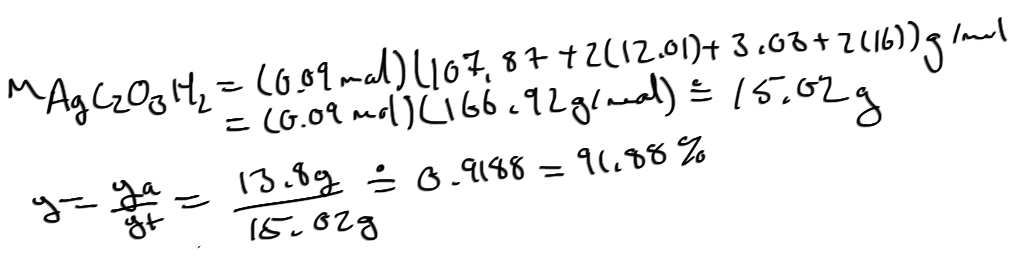 mAgC₂O₃H₂ = (0.09 mol)(107.87 + 2(12.01) + 3.03 + 2(16)) g/mol
= (0.09 mol)(166.92 g/mol) ≐ 15.02 g
y = ya/yt = 13.8g/15.02g ≐ 0.9188 = 91.88 %